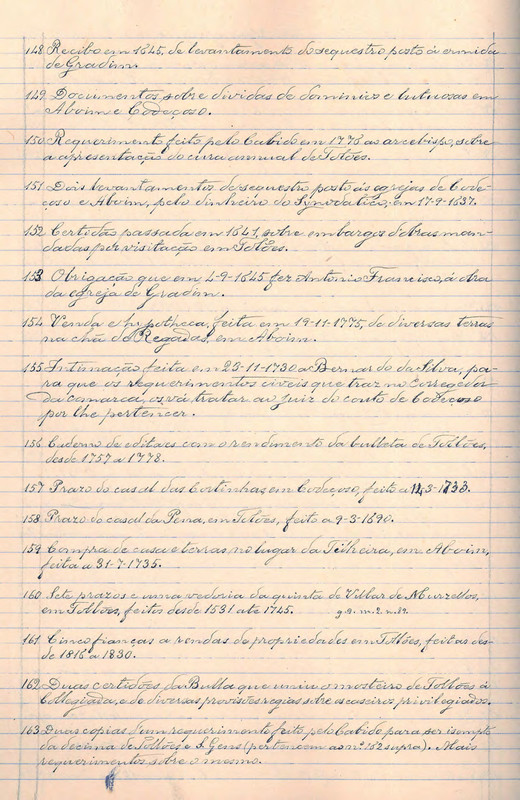 148 Recibo em 1645, de levantamento do sequestro posto á ermida
de Gradim.
149 Documentos sobre dividas de dominios e lutuosas em
Aboim e Codeçoso.
150 Requerimento feito pelo Cabido em 1775 ao arcebispo, sobre
a apresentação do cura annual de Tolões.
151 Dois levantamentos de sequestro posto ás igrejas de Code-
çoso e Aboim, pelo dinheiro do Synodatico; em 17-9-1637.
152 Certidão passada em 1641, sobre embargos d'obras man-
dadas por visitação em Tolões.
153 Obrigação que em 4-9-1645 fez Antonio Francisco, á obra
da egreja de Gradim.
154 Venda e hypotheca, feita em 19-11-1775, de diversas terras
na chã de Regadas, em Aboim.
155 Intimação feita em 23-11-1730 a Bernardo da Silva, pa-
ra que os requerimentos civeis que traz no corregedor
da comarca, os vá tratar ao juiz do couto de Codeçoso
por lhe pertencer.
156 Caderno de editaes com o rendimento da bulleta de Tollões,
desde 1757 a 1778.
157 Prazo do casal das Cortinhas, em Codeçoso, feito a 14-3-1733.
158 Prazo do casal da Pena, em Tolões, feito a 9-3-1690.
159 Compra de casa e terras no lugar da Telheira, em Aboim,
feita a 31-7-1735.
160 Sete prazos e uma vedoria da quinta de Villar de Murzellos,
em Tollões, feitos desde 1531 até 1745. g. 2. m. 2. n. 89.
161 Cinco fianças a rendas de propriedades em Tollões, feitas des-
de 1816 a 1830.
162 Duas certidões da Bulla que uniu o mosteiro de Tollões á
Collegiada, e de diversas provisões regias sobre os caseiros privilegiados.
163 Duas copias d'um requerimento feito pelo Cabido para ser isempto
da decima de Tollões e S. Gens (pertencem ao nº 162 supra). Mais
requerimentos sobre o mesmo.